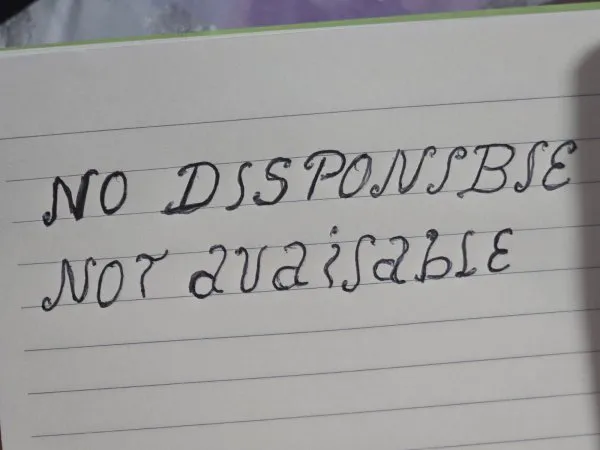 NO DISPONIBLE
NOT avaiLable